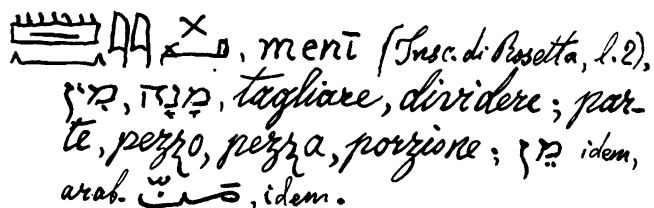 , menī (Insc. di Rosetta, l. 2),
מִין, מָנָה, tagliare, dividere; par-
te, pezzo, pezza, porzione; מֵן idem,
arab. , idem.